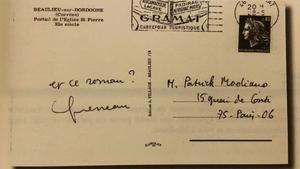 BEAULIEU-sur-DORDOGNE
(Corrèze)
Portail de l'Eglise St Pierre
XIe siècle
et ce roman ?
Queneau
PADIRAC
GRAMAT
CARREFOUR TOURISTIQUE
20 H
M. Patrick Modiano
15 quai de Conti
75 - Paris - 06